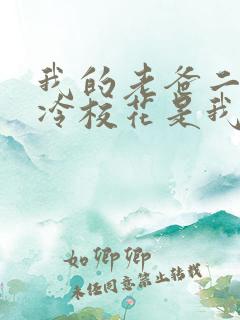 我的老爸二
冷校花是我
如卿卿
未经同意禁止转载